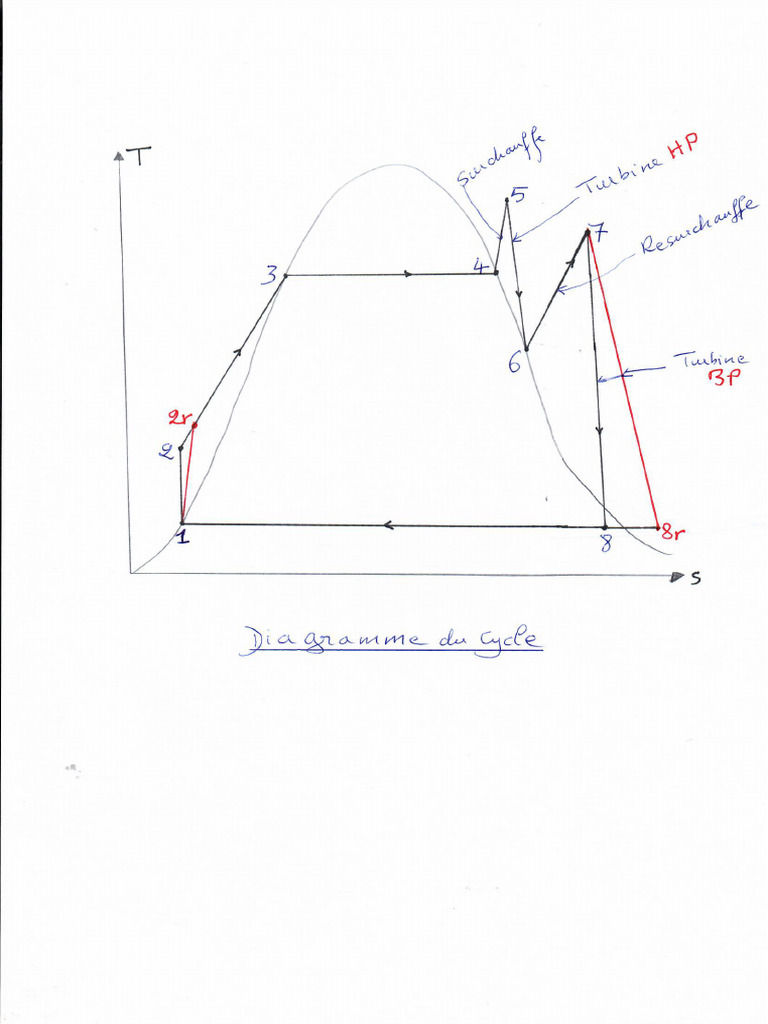 T
Surchauffe
Turbine HP
5
7
Resurchauffe
3
4
6
Turbine
BP
2r
2
1
8
8r
s
Diagramme du Cycle